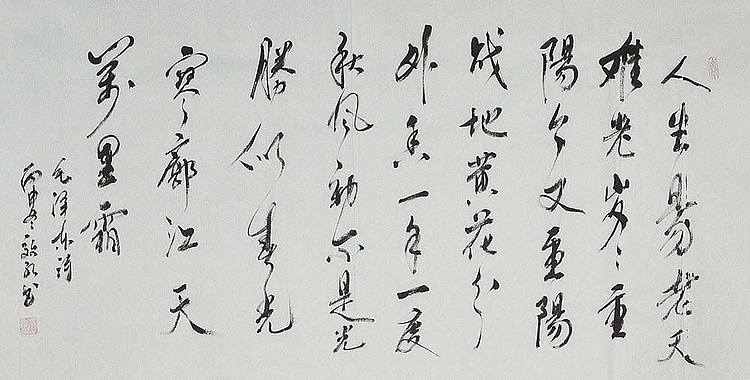 人生易老天
难老岁々重
陽今又重陽
战地黄花分
外香一年一度
秋风劲不是光
勝似春光
寥廓江天
萬里霜
毛泽东诗
丙申冬书